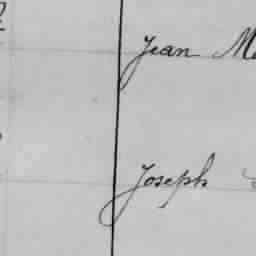 Jean M
Joseph